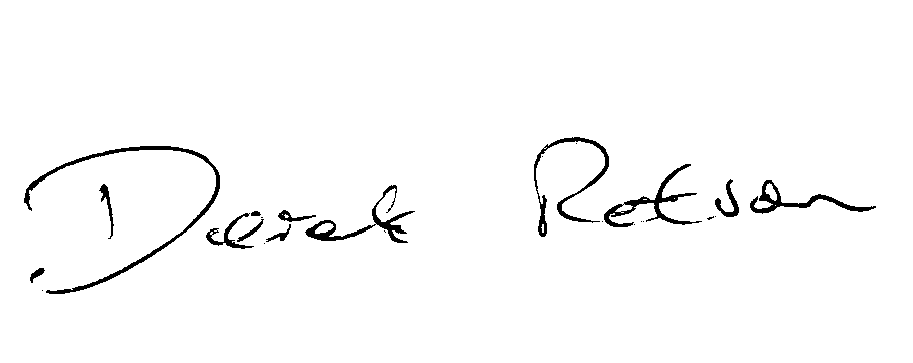 Derek Retson